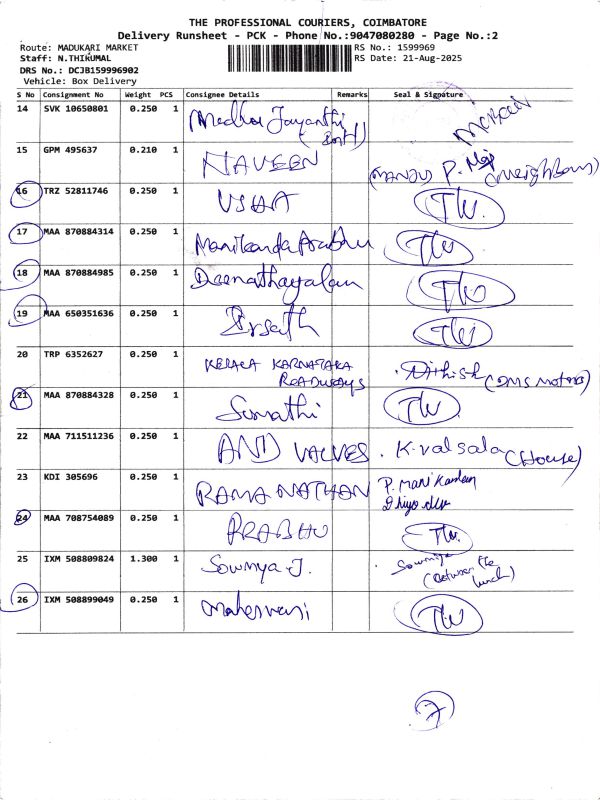 THE PROFESSIONAL COURIERS, COIMBATORE
Delivery Runsheet - PCK - Phone No.:9047080280 - Page No.:2
Route: MADUKARI MARKET RS No.: 1599969
Staff: N.THIKUMAL RS Date: 21-Aug-2025
DRS No.: DCJB159996902
Vehicle: Box Delivery
S No Consignment No Weight PCS Consignee Details Remarks Seal & Signature
14 SVK 10650801 0.250 1 Medha Jayanthi
15 GPM 495637 0.210 1 NAVEEN (MANOJ P. (Neighbour)
16 TRZ 52811746 0.250 1 USHA TW.
17 MAA 870884314 0.250 1 Manikanda Prabhu TW
18 MAA 870884985 0.250 1 Deenathayalan TW
19 MAA 650351636 0.250 1 Prsath TW
20 TRP 6352627 0.250 1 KERALA KARNATAKA
ROADWAYS Nithish (DMS Motors)
21 MAA 870884328 0.250 1 Sumathi TW
22 MAA 711511236 0.250 1 AND VALVES . K. valsala (House)
23 KDI 305696 0.250 1 RAMANATHAN P. Manikandan
24 MAA 708754089 0.250 1 PRABHU TW.
25 IXM 508809824 1.300 1 Sowmya J. Sowmiya
(Between the lunch)
26 IXM 508899049 0.250 1 Maheswari TW
7